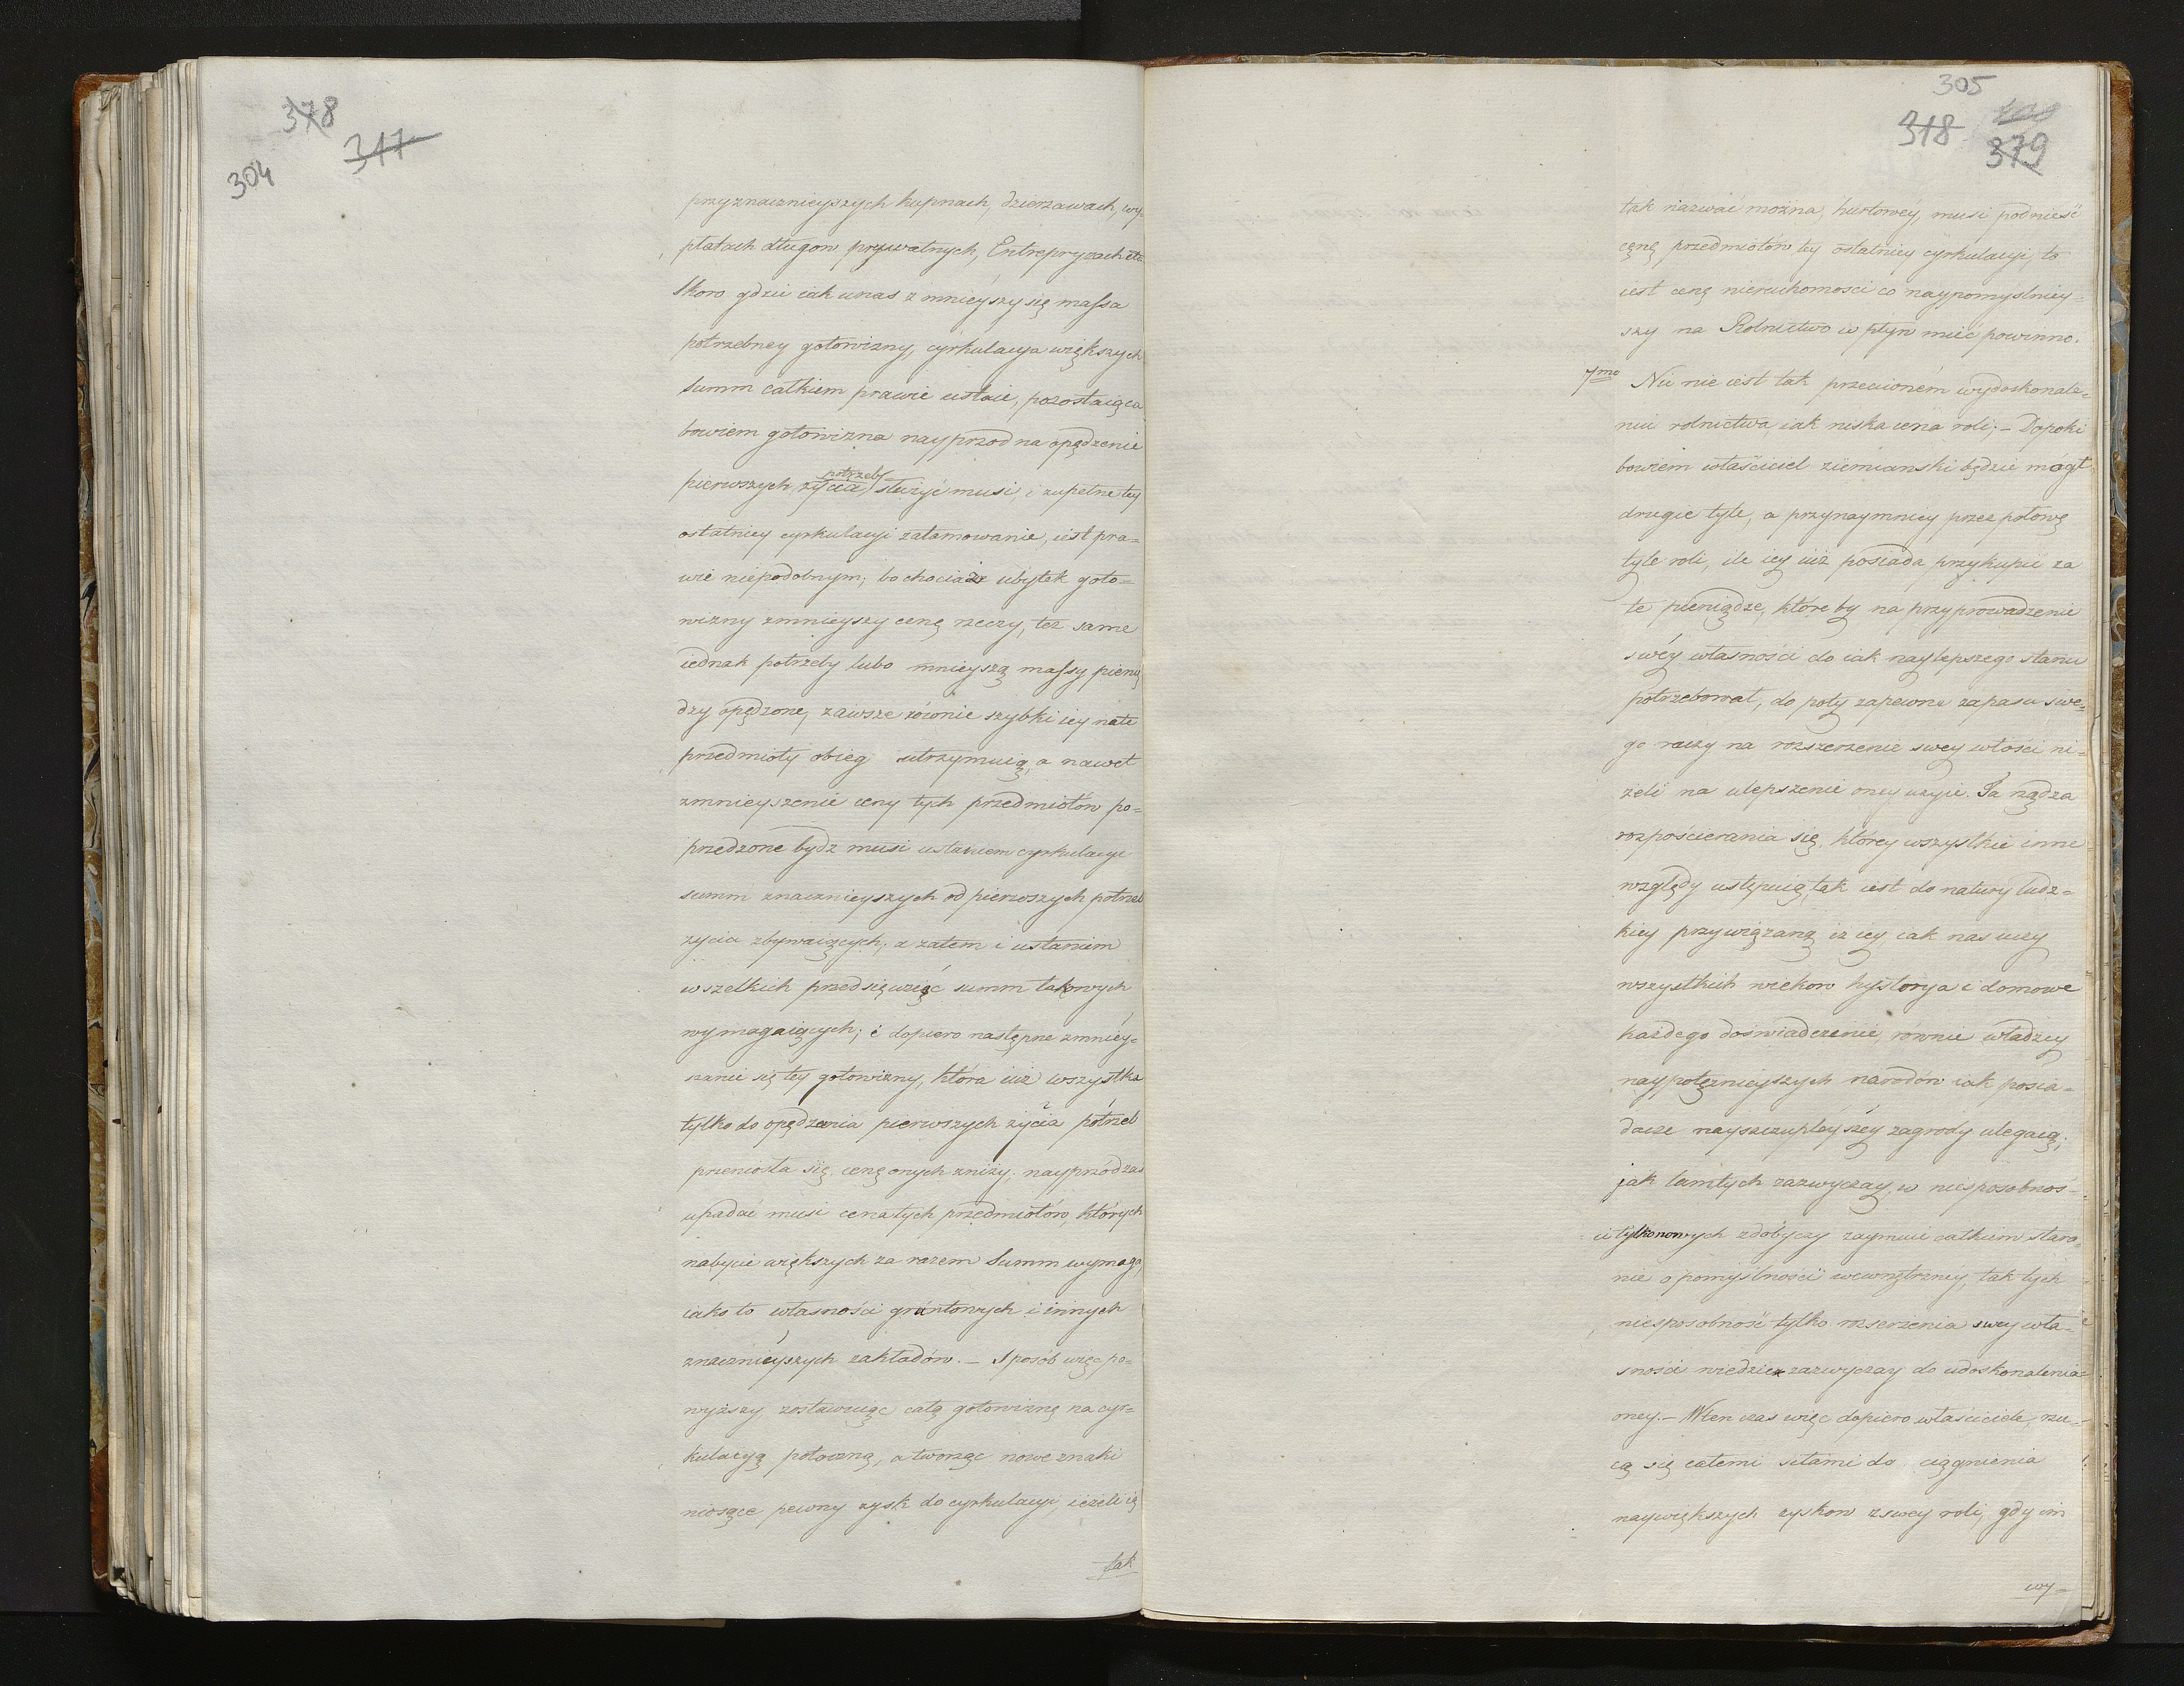 378
317
304
przyznacznieyszych kupnach, dzierzawach, wy-
płatach długow prywatnych, Entrepryzach etc
Skoro gdzie iak unas zmnieyszy się massa
potrzebney gotowizny, cyrkulacya większych
Summ całkiem prawie ustaie, pozostaiąca
bowiem gotowizna nayprzod na opędzenie
potrzeb
pierwszych życia służyć musi, i zupełne tey
ostatniey cyrkulacyi zatamowanie, iest pra=
wie niepodobnym; bo chociaż ubytek goto=
wizny zmnieyszy cenę rzeczy, też same
iednak potrzeby lubo mnieyszą massą pienię
dzy opędzone, zawsze równie szybki iey na te
przedmioty obieg utrzymuią, a nawet
zmnieyszenie ceny tych przedmiotow po=
przedzone bydz musi ustaniem cyrkulacyi
summ znacznieyszych od pierwszych potrzeb
życia zbywaiących; a zatem i ustaniem
wszelkich przedsięwzięć summ takowych
wymagaiących; i dopiero następne zmniey=
szanie się tey gotowizny, która iuż wszystka
tylko do opędzenia pierwszych życia potrzeb
przeniosła się, cenę onych zniży; nayprzód zaś
upadać musi cena tych przedmiotów, których
nabycie większych za razem Summ wymaga,
iako to własności gruntowych i innych
znacznieyszych zakładów. — Sposób więc po=
wyższy zostawuiąc całą gotowiznę na cyr=
kulacyą potoczną, a tworząc nowe znaki
niosące pewny zysk do cyrkulacyi, ieżeli ią
tak
305
318
379
tak nazwać można, hurtowey, musi podnieść
cenę przedmiotów tey ostatniey cyrkulacyi, to
iest cenę nieruchomości co naypomyślniey=
szy na Rolnictwo wpływ mieć powinno.
7mo Nic nie iest tak przeciwném wydoskonale=
niu rolnictwa iak niska cena roli; — Dopoki
bowiem właściciel ziemianski będzie mógł
drugie tyle, a przynaymniey przez połowę
tyle roli, ile iey iuż posiada przykupić za
te pieniądze, które by na przyprowadzenie
swéy własności do iak naylepszego stanu
potrzebował, do poty zapewne zapasu swe=
go raczy na rozszerzenie swey włości ni=
żeli na ulepszenie oney użyie. Ta rządza
rozpościerania się, którey wszystkie inne
względy ustępuią, tak iest do natury ludz=
kiey przywiązaną iż iey, iak nas uczy
wszystkich wiekow hystorya i domowe
każdego doświadczenie, równie władzcy
naypotężnieyszych narodów iak posia=
dacze nayszczupleyszéy zagrody ulegaią;
jak tamtych zazwyczay, w niesposobnoś=
ci tylko nowych zdobyczy zaymuie całkiem stara=
nie o pomyślności wewnętrzney, tak tych
niesposobność tylko rozserzenia swey wła=
sności wiedzie zazwyczay do udoskonalenia
oney. — Wten czas więc dopiero właściciele, rzu=
cą się całemi siłami do ciągnienia
naywiększych zyskow zswey roli, gdy im
wy=